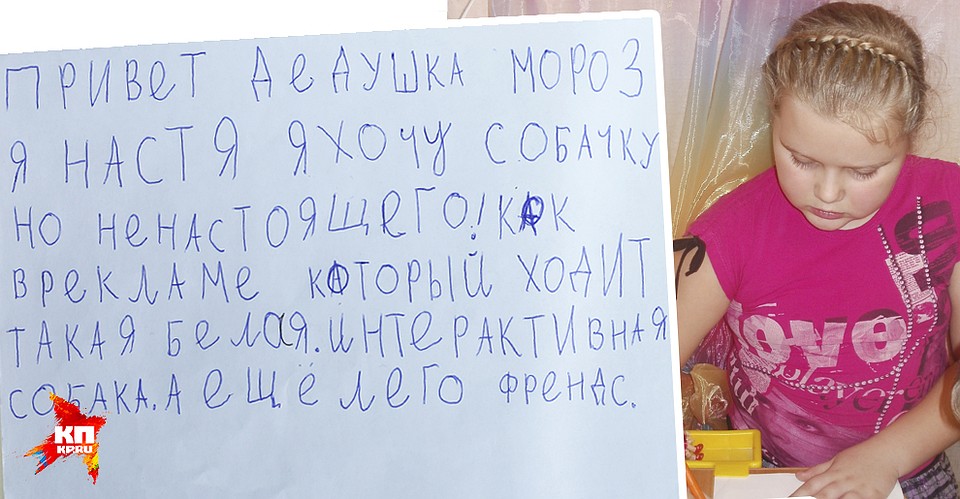 ПРИВЕТ ДЕДУШКА МОРОЗ
Я НАСТЯ Я ХОЧУ СОБАЧКУ
НО НЕНАСТОЯЩЕГО! КАК
ВРЕКЛАМЕ КАТОРЫЙ ХОДИТ
ТАКАЯ БЕЛАЯ. ИНТЕРАКТИВНАЯ
СОБАКА. А ЕЩЁ ЛЕГО ФРЕНДС.
КП
KP.RU
LOVE